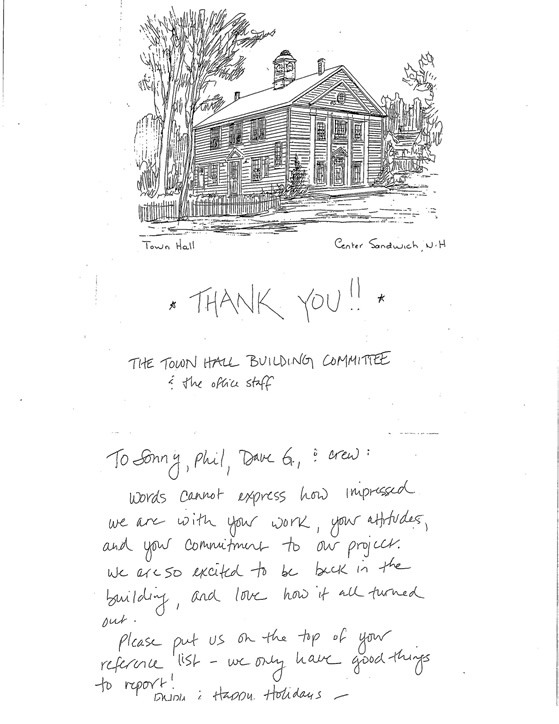 Town Hall
Center Sandwich, N.H
* THANK YOU!! *
THE TOWN HALL BUILDING COMMITTEE
& the office staff
To Sonny, Phil, Dave G., & crew:
Words cannot express how impressed
we are with your work, your attitudes,
and your commitment to our project.
We are so excited to be back in the
building, and love how it all turned
out.
Please put us on the top of your
reference list – we only have good things
to report!
Enjoy & Happy Holidays –